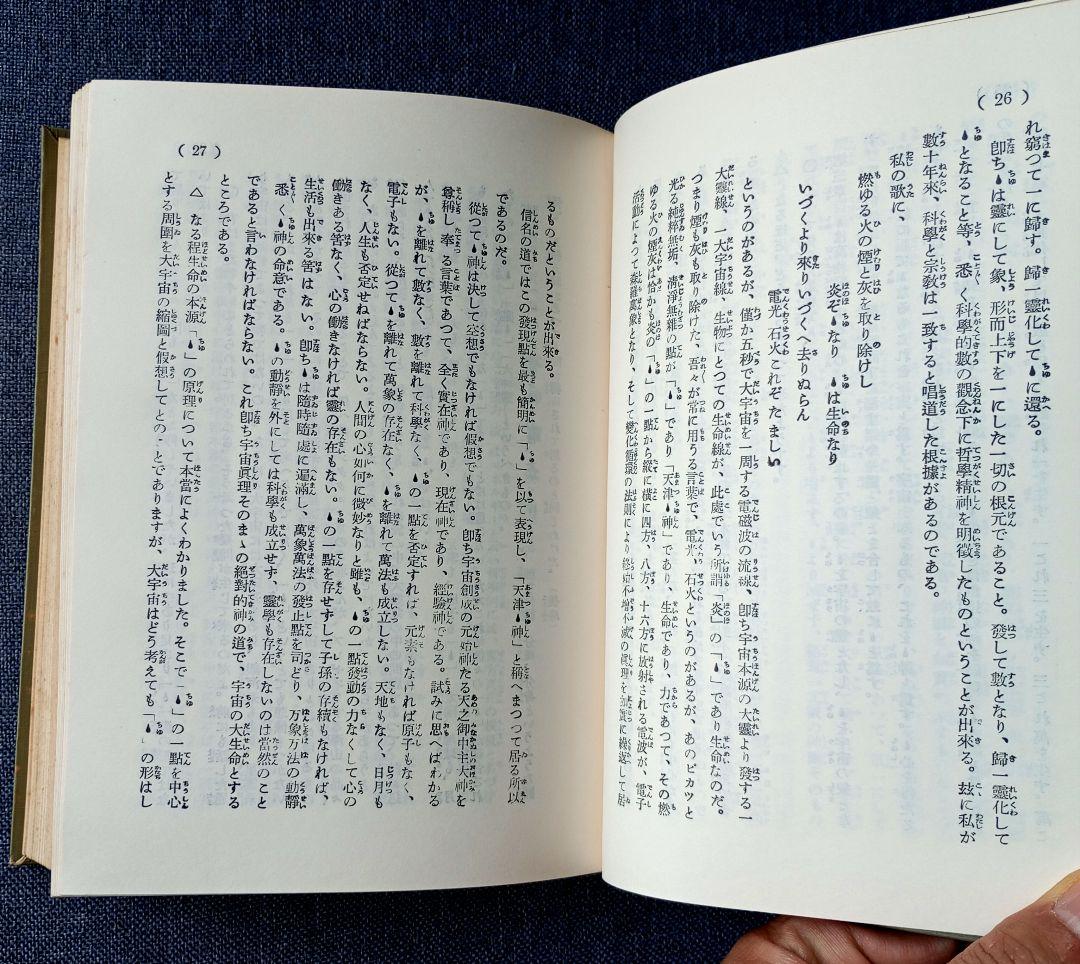 ( 26 )
れ窮つて一に歸す。歸一靈化して﹅に還る。
卽ち﹅は靈にして象、形而上下を一にした一切の根元であること。發して數となり、歸一靈化して
﹅となること等、悉く科學的數の觀念下に哲學精神を明徵したものということが出來る。玆に私が
數十年來、科學と宗敎は一致すると唱道した根據があるのである。
私の歌に、
燃ゆる火の煙と灰を取り除けし
炎ぞ﹅なり ﹅は生命なり
いづくより來りいづくへ去りぬらん
電光石火これぞたましい
というのがあるが、僅か五秒で大宇宙を一周する電磁波の流線、卽ち宇宙本源の大靈より發する一
大靈線、一大宇宙線、生物にとつての生命線が、此處でいう所謂「炎」の「﹅」であり生命なのだ。
つまり煙も灰も取り除けた、吾々が常に用うる言葉で、電光、石火というのがあるが、あのピカツと
光る純粹無垢、淸淨無雜の點が「﹅」であり「天津﹅神」であり、生命であり、力であつて、その燃
ゆる火の煙灰は恰かも炎の「﹅」の一點から縱に橫に四方、八方、十六方に放射される電波が、電子
の活動によつて森羅萬象となり、そして變化循環の法則により終始不增不滅の眞理を如實に繰返して居
( 27 )
るものだということが出來る。
信名の道ではこの發現點を最も簡明に「﹅」を以て表現し、「天津﹅神」と稱へまつつて居る所以
であるのだ。
從つて﹅神は決して空想でもなければ假想でもない。卽ち宇宙創成の元始神たる天之御中主大神を
尊稱し奉る言葉であつて、全く實在神であり、現在神であり、經驗神である。試みに思へばわかる
が、﹅を離れて數なく、數を離れて科學なく、﹅の一點を否定すれば、元素もなければ原子もなく、
電子もない。從つて﹅を離れて萬象の存在なく、﹅を離れて萬法も成立しない。天地もなく、日月も
なく、人生も否定せねばならない。人間の心如何に微妙なりと雖も、﹅の一點發動の力なくして心の
働きある筈なく、心の働きなければ靈の存在もない。﹅の一點を存せずして子孫の存續もなければ、
生活も出來る筈はない。卽ち﹅は隨時隨處に遍滿し、萬象萬法の發止點を司どり、万象万法の動靜
悉く﹅神の命意である。﹅の動靜を外にしては科學も成立せず、靈學も存在しないのは當然のこと
であると言わなければならない。これ卽ち宇宙眞理そのまゝの絕對的神の道で、宇宙の大生命とする
ところである。
△ なる程生命の本源「﹅」の原理について本當によくわかりました。そこで「﹅」の一點を中心
とする周圍を大宇宙の縮圖と假想してとのことでありますが、大宇宙はどう考えても「﹅」の形はし